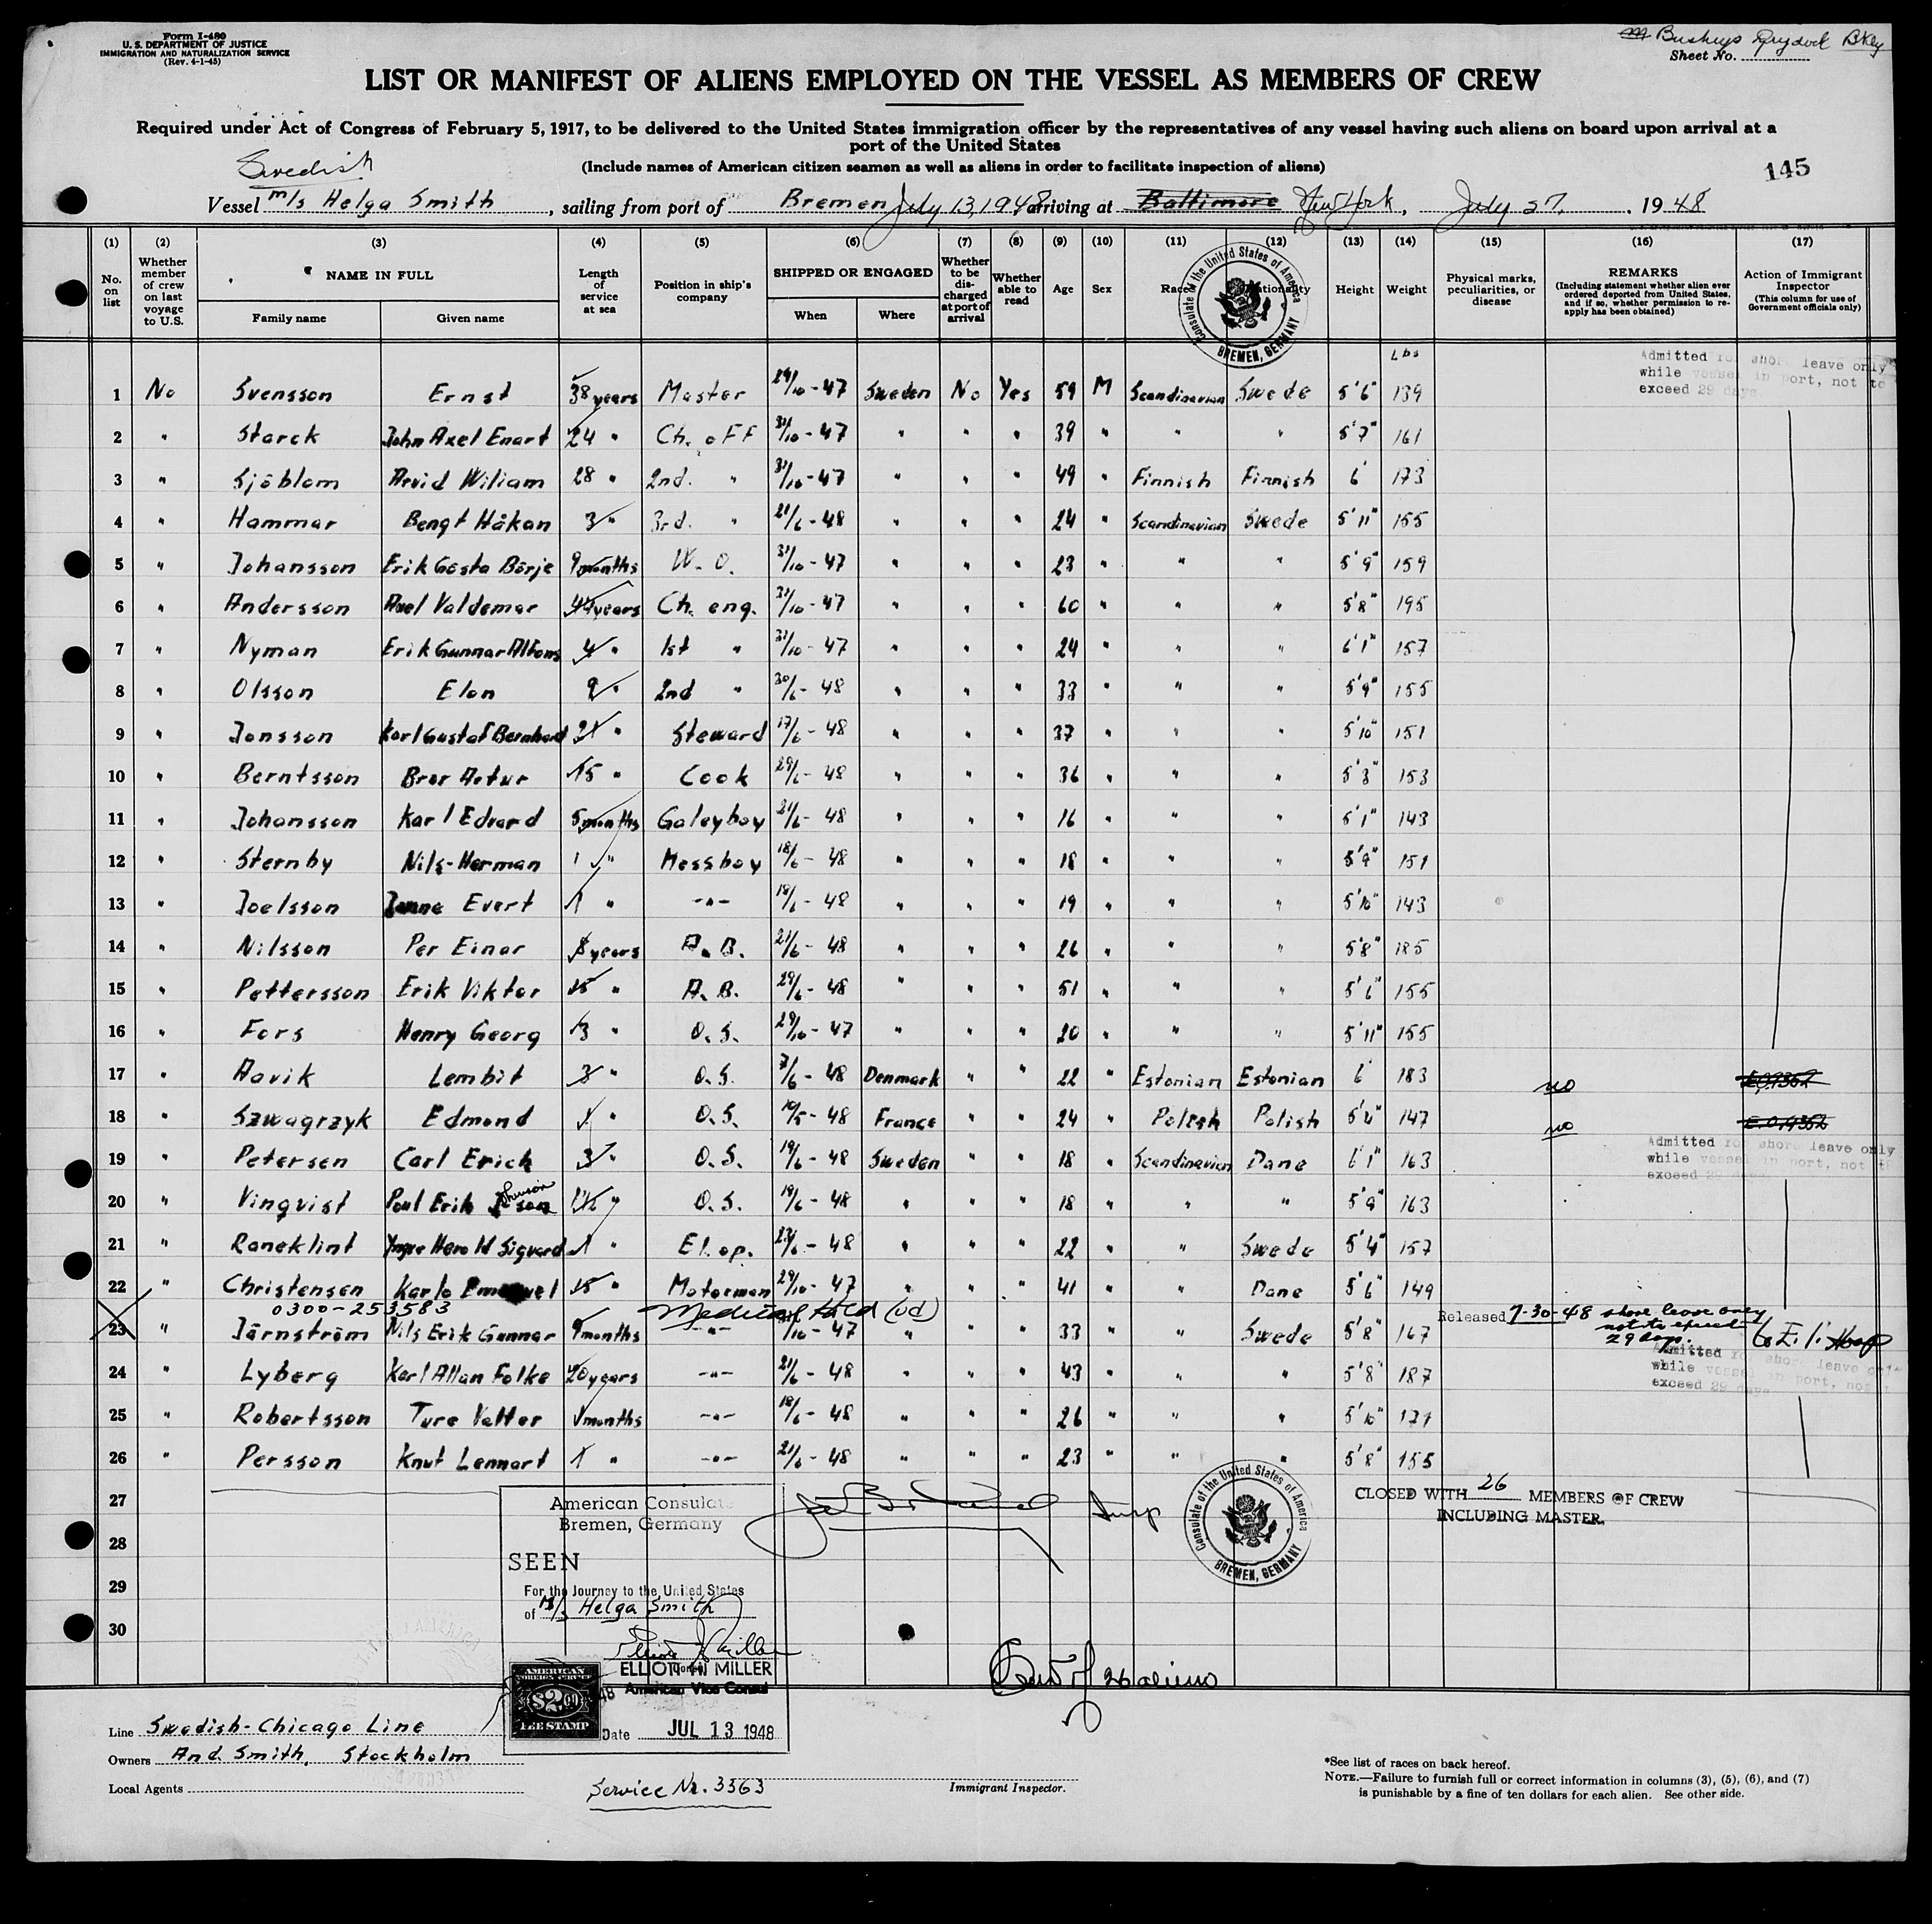 Form I-480
U. S. DEPARTMENT OF JUSTICE
IMMIGRATION AND NATURALIZATION SERVICE
(Rev. 4-1-45)
Bkly
Sheet No.
LIST OR MANIFEST OF ALIENS EMPLOYED ON THE VESSEL AS MEMBERS OF CREW
Required under Act of Congress of February 5, 1917, to be delivered to the United States immigration officer by the representatives of any vessel having such aliens on board upon arrival at a
port of the United States
(Include names of American citizen seamen as well as aliens in order to facilitate inspection of aliens)
145
Swedish
Vessel m/s Helga Smith, sailing from port of Bremen July 13, 1948 arriving at Baltimore New York, July 27, 1948
(1) (2) (3) (4) (5) (6) (7) (8) (9) (10) (11) (12) (13) (14) (15) (16) (17)
No. on list
Whether member of crew on last voyage to U.S.
NAME IN FULL
Family name
Given name
Length of service at sea
Position in ship's company
SHIPPED OR ENGAGED
When
Where
Whether to be discharged at port of arrival
Whether able to read
Age
Sex
Race
Nationality
Height
Weight
Physical marks, peculiarities, or disease
REMARKS
(Including statement whether alien ever ordered deported from United States, and if so, whether permission to reapply has been obtained)
Action of Immigrant Inspector
(This column for use of Government officials only)
Consulate of the United States of America
BREMEN, GERMANY
Lbs
Admitted for shore leave only
while vessel in port, not to
exceed 29 days.
1 No Svensson Ernst 38 years Master 29/10 - 47 Sweden No Yes 59 M Scandinavian Swede 5'6" 139
2 " Starck John Axel Enart 24 " Ch. off 31/10 - 47 " " " 39 " " " 5'7" 161
3 " Sjöblom Arvid Wiliam 28 " 2nd. " 31/10 - 47 " " " 49 " Finnish Finnish 6' 173
4 " Hammar Bengt Håkan 3 " 3rd. " 21/6 - 48 " " " 24 " Scandinavian Swede 5'11" 155
5 " Johansson Erik Gösta Börje 9 months W. O. 31/10 - 47 " " " 23 " " " 5'9" 159
6 " Andersson Axel Valdemar 44 years Ch. eng. 31/10 - 47 " " " 60 " " " 5'8" 195
7 " Nyman Erik Gunnar Alfons 4 " 1st " 31/10 - 47 " " " 24 " " " 6'1" 157
8 " Olsson Elon 9 " 2nd " 30/6 - 48 " " " 33 " " " 5'9" 155
9 " Jonsson Karl Gustaf Bernhard 21 " Steward 17/6 - 48 " " " 37 " " " 5'10" 151
10 " Berntsson Bror Artur 15 " Cook 29/6 - 48 " " " 36 " " " 5'3" 153
11 " Johansson Karl Edvard 5 months Galeyboy 21/6 - 48 " " " 16 " " " 5'1" 143
12 " Sternby Nils-Herman 1 " Messboy 18/6 - 48 " " " 18 " " " 5'9" 151
13 " Joelsson Janne Evert 1 " -"- 18/6 - 48 " " " 19 " " " 5'10" 143
14 " Nilsson Per Einar 8 years A. B. 21/6 - 48 " " " 26 " " " 5'8" 185
15 " Pettersson Erik Viktor 15 " A. B. 29/6 - 48 " " " 51 " " " 5'6" 155
16 " Fors Henry Georg 3 " O. S. 29/10 - 47 " " " 20 " " " 5'11" 155
17 " Aavik Lembit 3 " O. S. 7/6 - 48 Denmark " " 22 " Estonian Estonian 6' 183 no
18 " Szwagrzyk Edmond 1 " O. S. 10/5 - 48 France " " 24 " Polish Polish 5'4" 147 no
Admitted for shore leave only
while vessel in port, not to
exceed 29 days.
19 " Petersen Carl Erick 3 " O. S. 19/6 - 48 Sweden " " 18 " Scandinavian Dane 6'1" 163
20 " Vinqvist Poul Erik 1½ " O. S. 19/6 - 48 " " " 18 " " " 5'9" 163
21 " Raneklint Yngve Harold Sigvard 1 " El. op. 23/6 - 48 " " " 22 " " Swede 5'4" 157
22 " Christensen Karlo Emanuel 15 " Motorman 29/10 - 47 " " " 41 " " Dane 5'6" 149
0300-253583 Medical Hold (vd) Released 7-30-48 shore leave only
not to exceed
29 days.
23 " Järnström Nils Erik Gunnar 9 months -"- 31/10 - 47 " " " 33 " " Swede 5'8" 167
Admitted for shore leave only
while vessel in port, not to
exceed 29 days
24 " Lyberg Karl Allan Folke 20 years -"- 21/6 - 48 " " " 43 " " " 5'8" 187
25 " Robertsson Ture Valter 1 months -"- 18/6 - 48 " " " 26 " " " 5'10" 177
26 " Persson Knut Lennart 1 " -"- 21/6 - 48 " " " 23 " " " 5'8" 155
27
28
29
30
CLOSED WITH 26 MEMBERS OF CREW
INCLUDING MASTER.
American Consulate
Bremen, Germany
SEEN
For the Journey to the United States
of M/S Helga Smith
ELLIOT H MILLER
American Vice Consul
AMERICAN
FOREIGN SERVICE
$2.00
FEE STAMP
Date JUL 13 1948
Consulate of the United States of America
BREMEN, GERMANY
26 aliens
Line Swedish-Chicago Line
Owners And. Smith, Stockholm
Local Agents
Service Nr. 3363
Immigrant Inspector.
*See list of races on back hereof.
NOTE.—Failure to furnish full or correct information in columns (3), (5), (6), and (7)
is punishable by a fine of ten dollars for each alien. See other side.